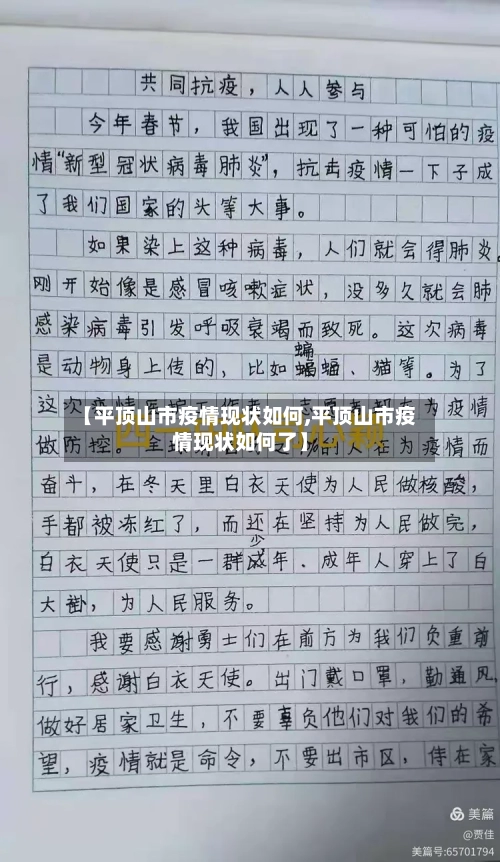 共同抗疫，人人参与
今年春节，我国出现了一种可怕的疫
情“新型冠状病毒肺炎”，抗击疫情一下子成
了我们国家的头等大事。
如果染上这种病毒，人们就会得肺炎。
刚开始像是感冒咳嗽症状，没多久就会肺
感染病毒引发呼吸衰竭而致死。这次病毒
是动物身上传的，比如蝙蝠、猫等。为了
这次疫情
在为疫情
【平顶山市疫情现状如何,平顶山市疫
情现状如何了】
做防控。全
的人在为疫情而
奋斗，在冬天里白衣天使为人民做核酸，
手都被冻红了，而还在坚持为人民做完，
白衣天使只是一群少年、成年人穿上了白
大褂，为人民服务。
我要感谢勇士们在前方为我们负重前
行，感谢白衣天使。出门戴口罩，勤通风，
做好居家卫生，不要辜负他们对我们的希
望，疫情就是命令，不要出市区，待在家
美篇
@贾佳
美篇号:65701794